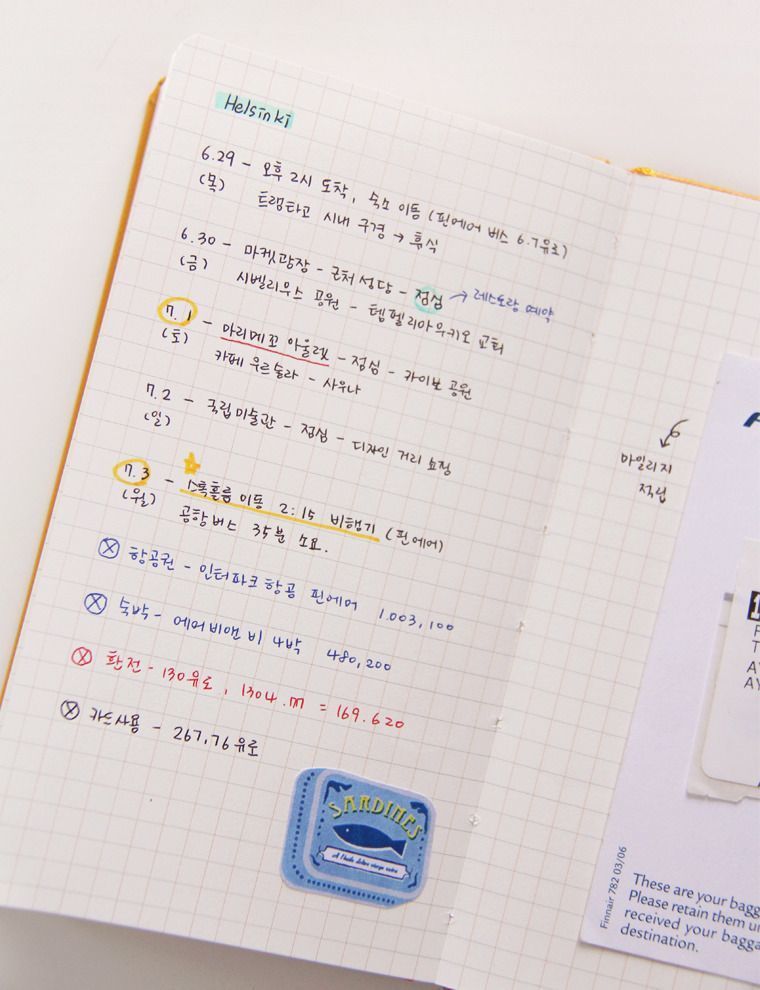 Helsinki
6.29 - 오후 2시 도착, 숙소 이동 (핀에어 버스 6.7유로)
(목) 트램타고 시내 구경 → 휴식
6.30 - 마켓광장 - 근처 성당 - 점심 → 레스토랑 예약
(금) 시벨리우스 공원 - 템펠리아우키오 교회
7.1 - 마리메꼬 아울렛 - 점심 - 카이보 공원
(토) 카페 우르슬라 - 사우나
7.2 - 국립미술관 - 점심 - 디자인 거리 쇼핑
(일)
7.3 - 스톡홀름 이동 2:15 비행기 (핀에어)
(월) 공항버스 35분 소요.
항공권 - 인터파크항공 핀에어 1.003,100
숙박 - 에어비앤비 4박 480,200
환전 - 130유로, 1304.m = 169.620
카드사용 - 267.76유로
SARDINES
마일리지
적립
Finnair 782 03/06
These are your bagg
Please retain them un
received your bagga
destination.